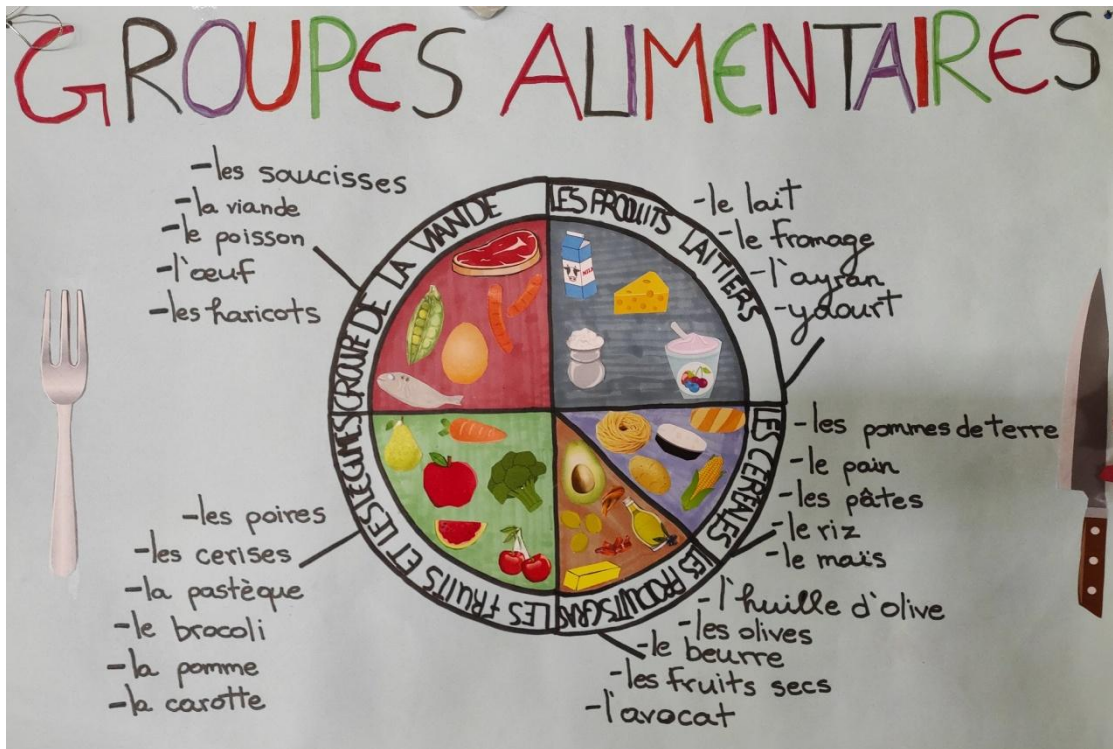 GROUPES ALIMENTAIRES
-les saucisses
-la viande
-le poisson
-l'œuf
-les haricots
GROUPE DE LA VIANDE
LES PRODUITS LAITIERS
-le lait
-le fromage
-l'ayran
-yaourt
MILK
LES CEREALES
-les pommes de terre
-le pain
-les pâtes
-le riz
-le maïs
LES PRODUITS GRAS
-l'huille d'olive
-les olives
-le beurre
-les fruits secs
-l'avocat
LES FRUITS ET LES LEGUMES
-les poires
-les cerises
-la pastèque
-le brocoli
-la pomme
-la carotte